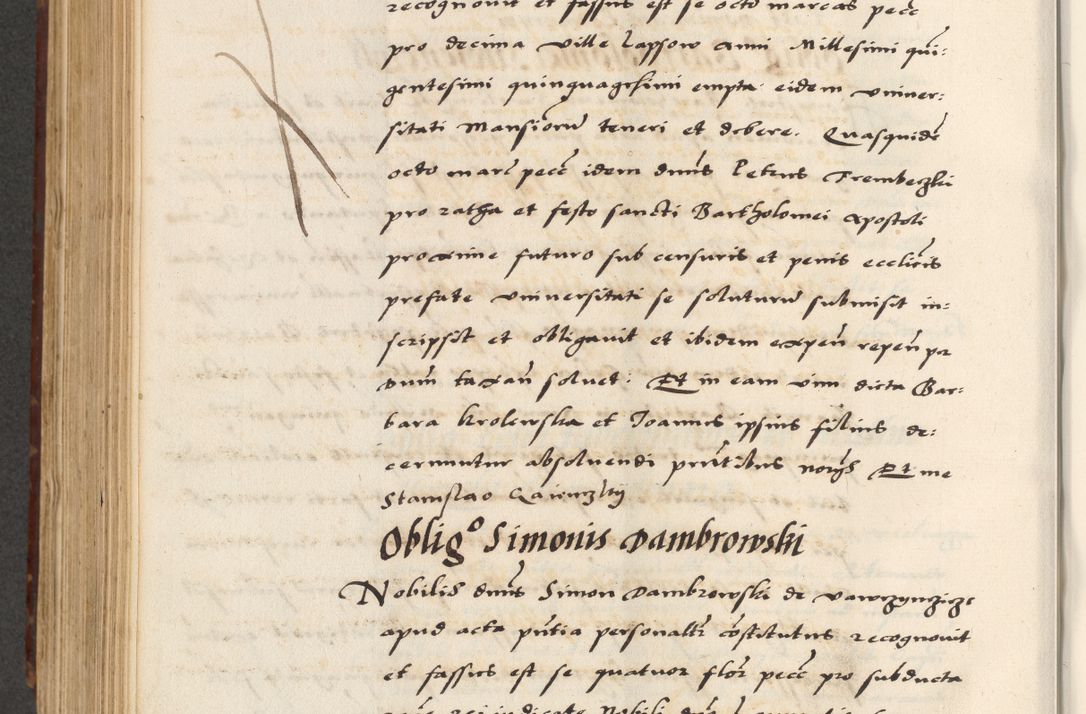 recognovit et fassus est se octo marcas pecc
pro decima ville Lapsow anni Millesimi qui:
gentesimi quinquagesimi empta eidem univer:
sitati Mansioru teneri et debere. Quasquide
octo marc pecc idem dnus Petrus Trembeczki
pro ratha et festo sancti Bartholomei Apostoli
proxime futuro sub censuris et penis ecclicis
prefate universitati se soluturu submisit in:
scripsit et obligavit et ibidem expen repen pa
num taxan solvet: Et in eam vim dicta Bar:
bara Krolewska et Joannes ipsius filius de:
cernuntur absolvendi pntibus notys Et me
Stanislao
Oblig° Simonis Dambrowski
Nobilis dnus Simon Dambrowski de Vawrzynczicze
apud acta pntia personaltr constitutus recognovit
et fassus est se quatuor flor pecc pro subducta
rei iudicate Nobili